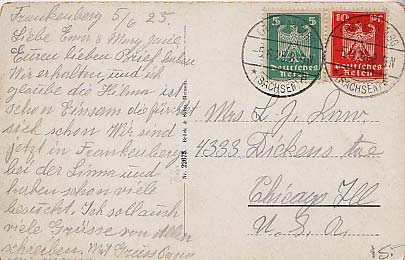 Frankenberg 5/6 25.
Liebe Erna & Mary Jane.
Euren lieben Brief haben
Wir erhalten und ich
glaube die Helena ist
schon Einsam die fürchtet
sich schon Wir sind
jetzt in Frankenberg
bei der Linna und
haben schon viele
besucht. Ich soll auch
viele Grüsse von Allen
schreiben. Mit Gruss
Nr. 22673.
5 5
Deutsches
Reich
10 Pf.
Deutsches
Reich
(SACHSEN)
(SACHSEN)
Mrs. L. J. Law.
4333 Dickens Ave
Chicago Ill
U. S. A.
15-